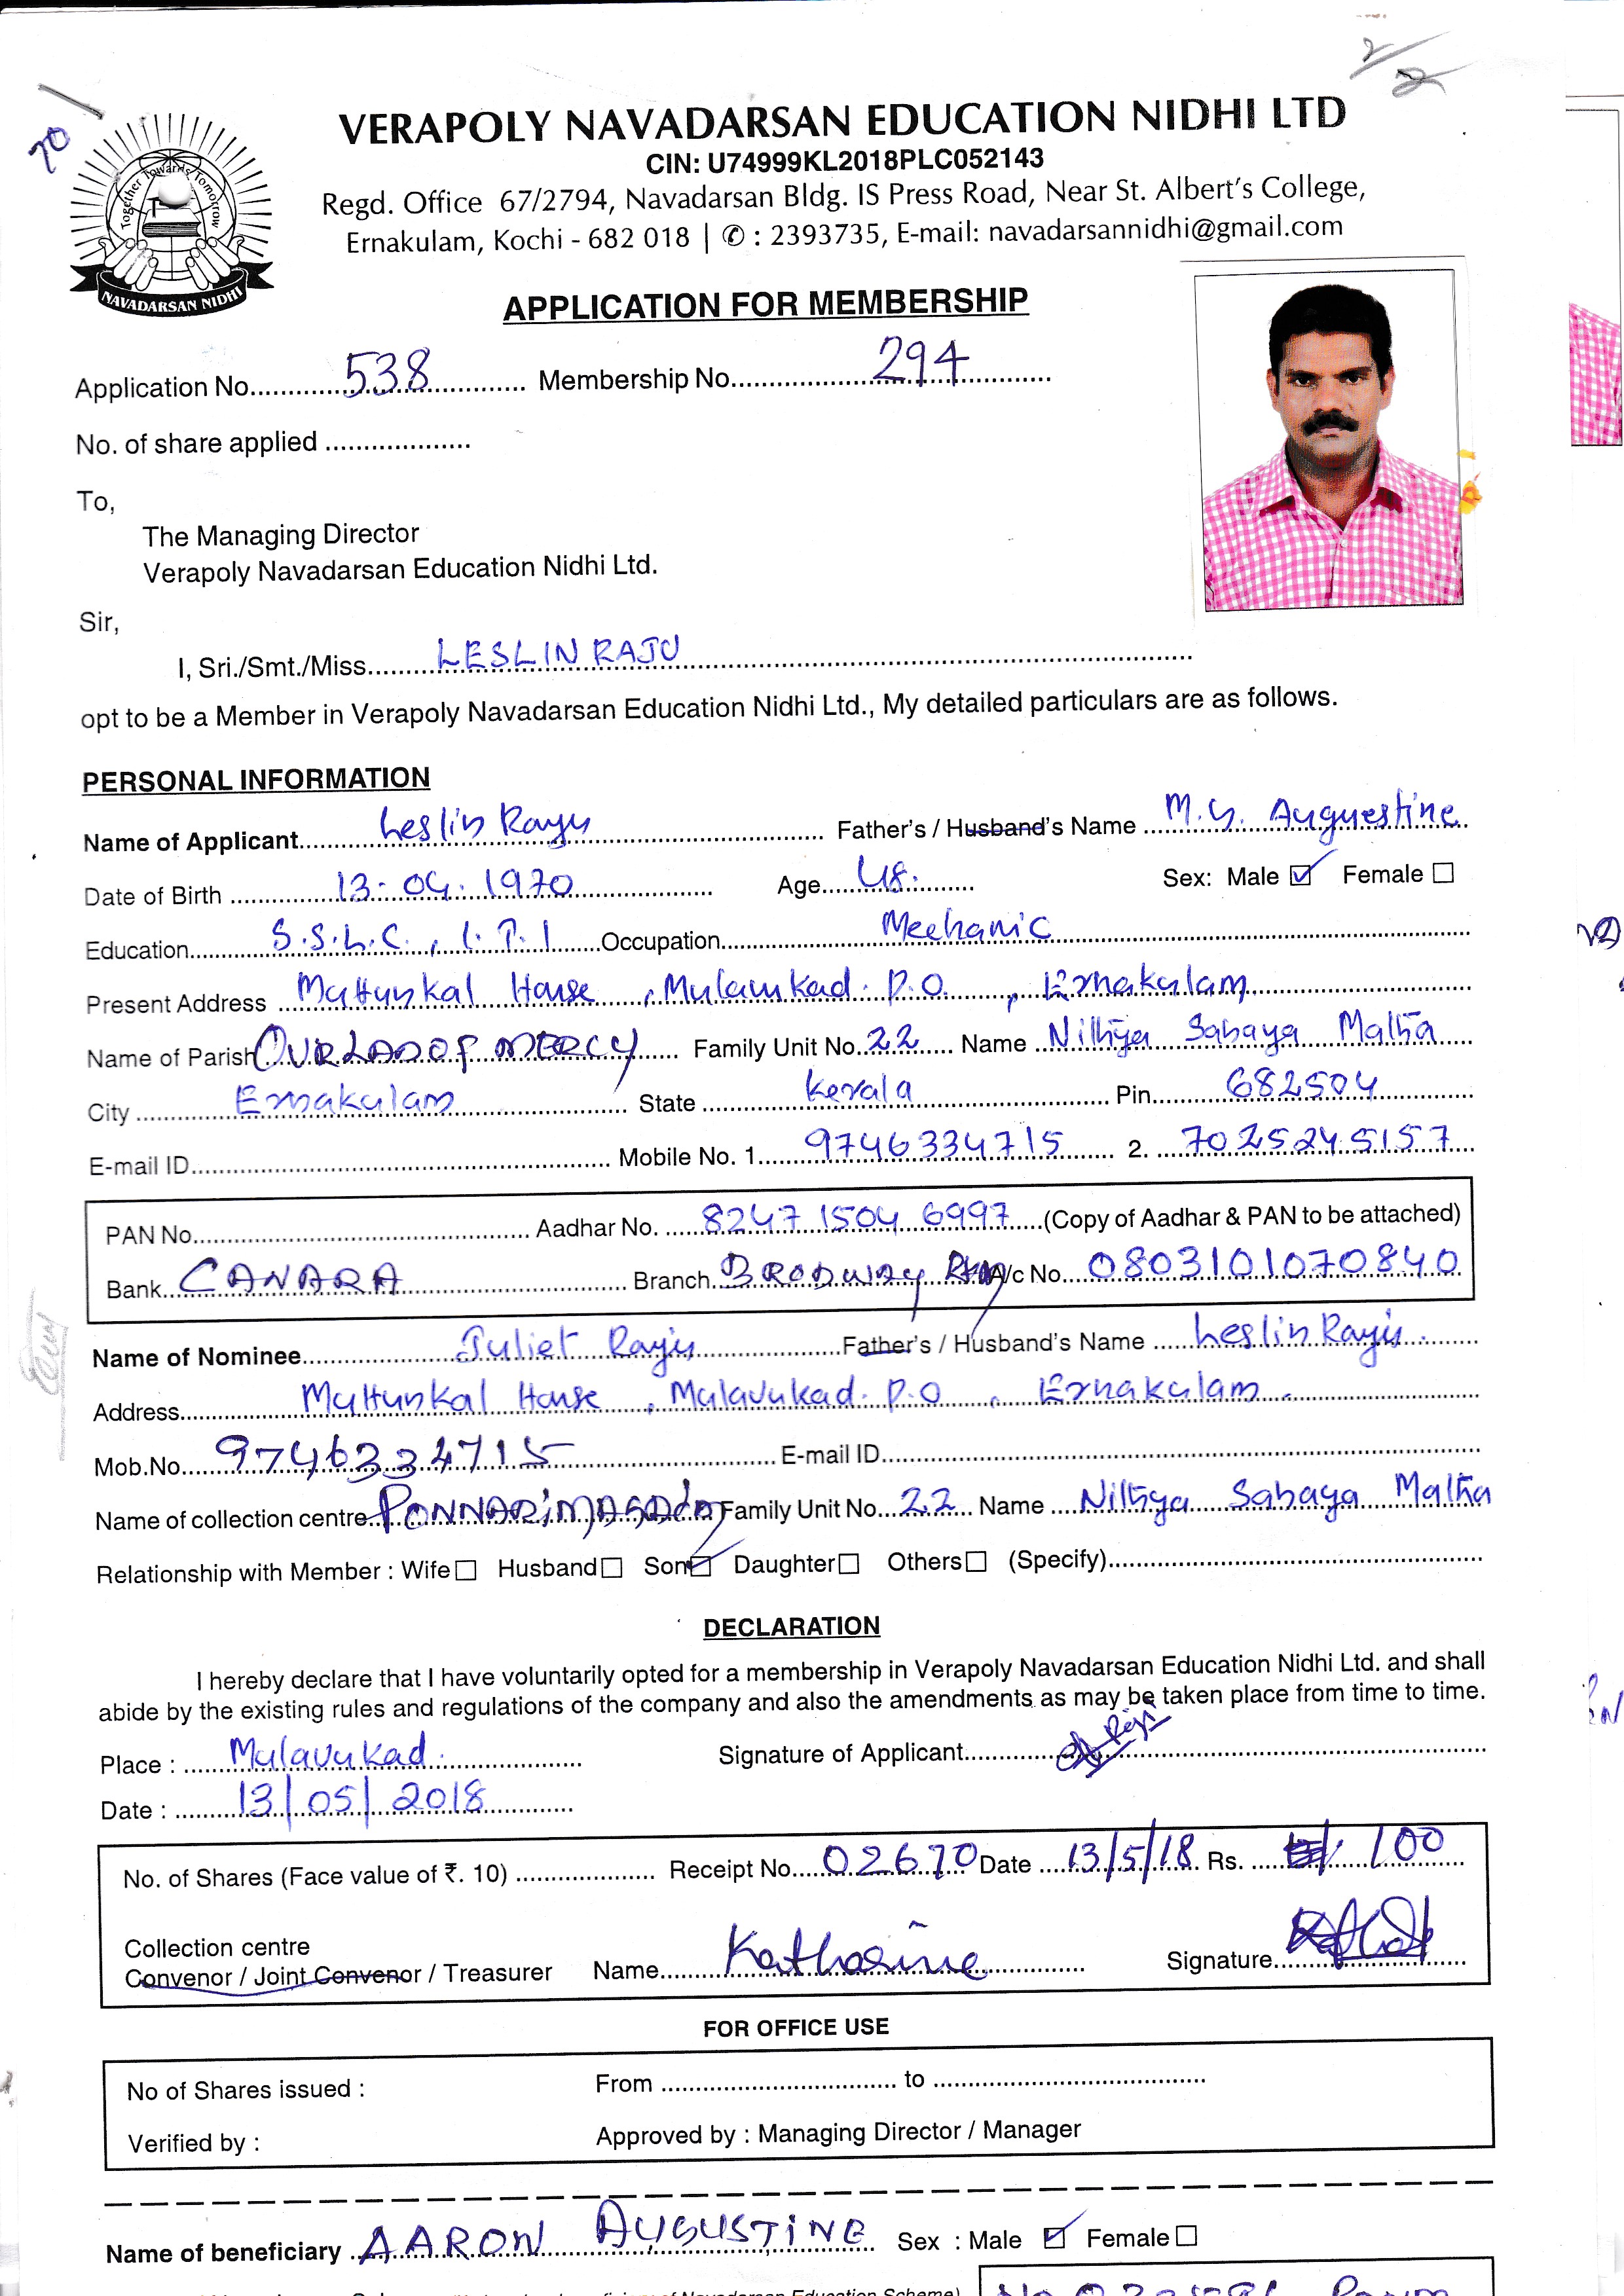 2/2
70
Together Towards Tomorrow
NAVADARSAN NIDHI
VERAPOLY NAVADARSAN EDUCATION NIDHI LTD
CIN: U74999KL2018PLC052143
Regd. Office 67/2794, Navadarsan Bldg. IS Press Road, Near St. Albert's College,
Ernakulam, Kochi - 682 018 | ✆ : 2393735, E-mail: navadarsannidhi@gmail.com
APPLICATION FOR MEMBERSHIP
Application No. 538 Membership No. 294
No. of share applied
To,
The Managing Director
Verapoly Navadarsan Education Nidhi Ltd.
Sir,
I, Sri./Smt./Miss. LESLIN RAJU
opt to be a Member in Verapoly Navadarsan Education Nidhi Ltd., My detailed particulars are as follows.
PERSONAL INFORMATION
Name of Applicant Leslin Raju Father's / Husband's Name M.Y. Auguestine
Date of Birth 13-04-1970 Age 48. Sex: Male ☑ Female ☐
Education S.S.L.C., I.T.I Occupation Mechanic
Present Address Muttunkal House, Mulavukad. P.O, Ernakulam
Name of Parish OUR LADOF MERCY Family Unit No. 22 Name Nithya Sahaya Matha
City Ernakulam State Kerala Pin 682504
E-mail ID Mobile No. 1. 9746334715 2. 7025245157
PAN No. Aadhar No. 8247 1504 6997 (Copy of Aadhar & PAN to be attached)
Bank CANARA Branch BRODWAY A/c No. 0803101070840
Name of Nominee Juliet Raju Father's / Husband's Name Leslin Raju
Address Muttunkal House, Mulavukad. P.O, Ernakulam.
Mob.No. 9746334715 E-mail ID
Name of collection centre Family Unit No. 22 Name Nithya Sahaya Matha
Relationship with Member : Wife ☐ Husband ☐ Son ☑ Daughter ☐ Others ☐ (Specify)
DECLARATION
I hereby declare that I have voluntarily opted for a membership in Verapoly Navadarsan Education Nidhi Ltd. and shall
abide by the existing rules and regulations of the company and also the amendments as may be taken place from time to time.
Place : Mulavukad. Signature of Applicant
Date : 13/05/2018
No. of Shares (Face value of ₹. 10) Receipt No. 02670 Date 13/5/18 Rs. 100
Collection centre
Convenor / Joint Convenor / Treasurer Name Katharine Signature
FOR OFFICE USE
No of Shares issued : From to
Verified by : Approved by : Managing Director / Manager
Name of beneficiary AARON AUGUSTINE Sex : Male ☑ Female ☐